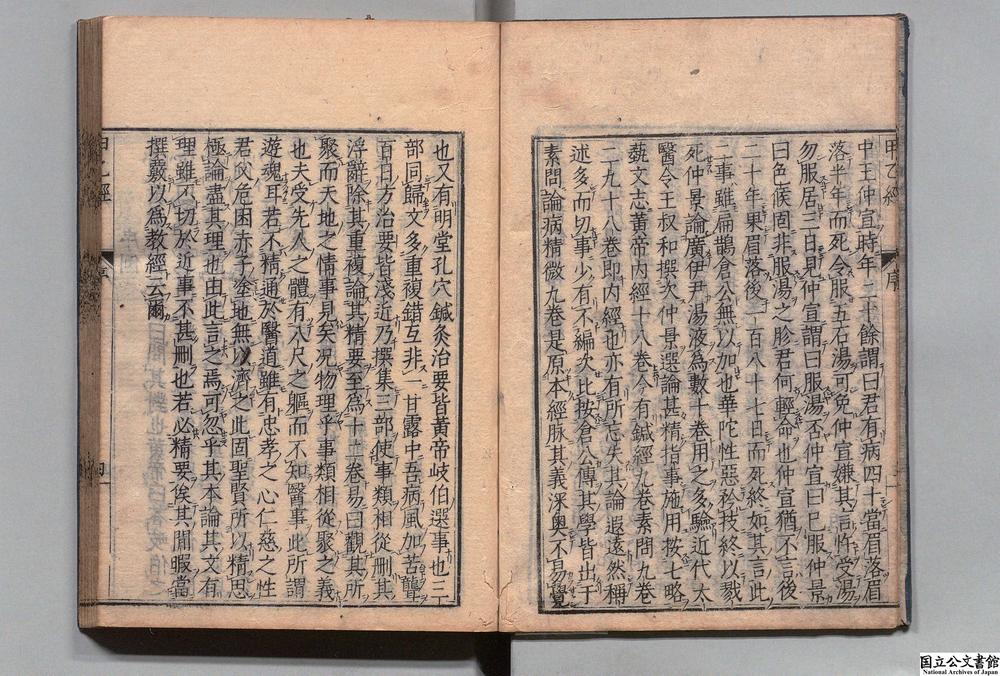 中王仲宣時年二十餘謂曰君有病四十當眉落眉
落半年而死令服五石湯可免仲宣嫌其言忤受湯
勿服居三日見仲宣謂曰服湯否仲宣曰已服仲景
曰色候固非服湯之胗君何輕命也仲宣猶不言後
二十年果眉落後一百八十七日而死終如其言此
二事雖扁鵲倉公無以加也華陀性惡矜技終以戮
死仲景論廣伊尹湯液為數十卷用之多驗近代太
醫令王叔和撰次仲景選論甚精指事施用按七略
蓺文志黃帝內經十八卷今有鍼經九卷素問九卷
二九十八卷即內經也亦有所忘失其論遐遠然稱
述多而切事少有不編次比按倉公傳其學皆出于
素問論病精微九卷是原本經脉其義深奧不易覺
甲乙經
序
也又有明堂孔穴鍼灸治要皆黃帝岐伯選事也三
部同歸文多重複錯互非一甘露中吾病風加苦聾
百日方治要皆淺近乃撰集三部使事類相從刪其
浮辭除其重複論其精要至為十二卷易曰觀其所
聚而天地之情事見矣况物理乎事類相從聚之義
也夫受先人之體有八尺之軀而不知醫事此所謂
遊魂耳若不精通於醫道雖有忠孝之心仁慈之性
君父危困赤子塗地無以濟之此固聖賢所以精思
極論盡其理也由此言之焉可忽乎其本論其文有
理雖不切於近事不甚刪也若必精要俟其閒暇當
撰覈以為教經云爾
甲乙經
序
四
国立公文書館
National Archives of Japan